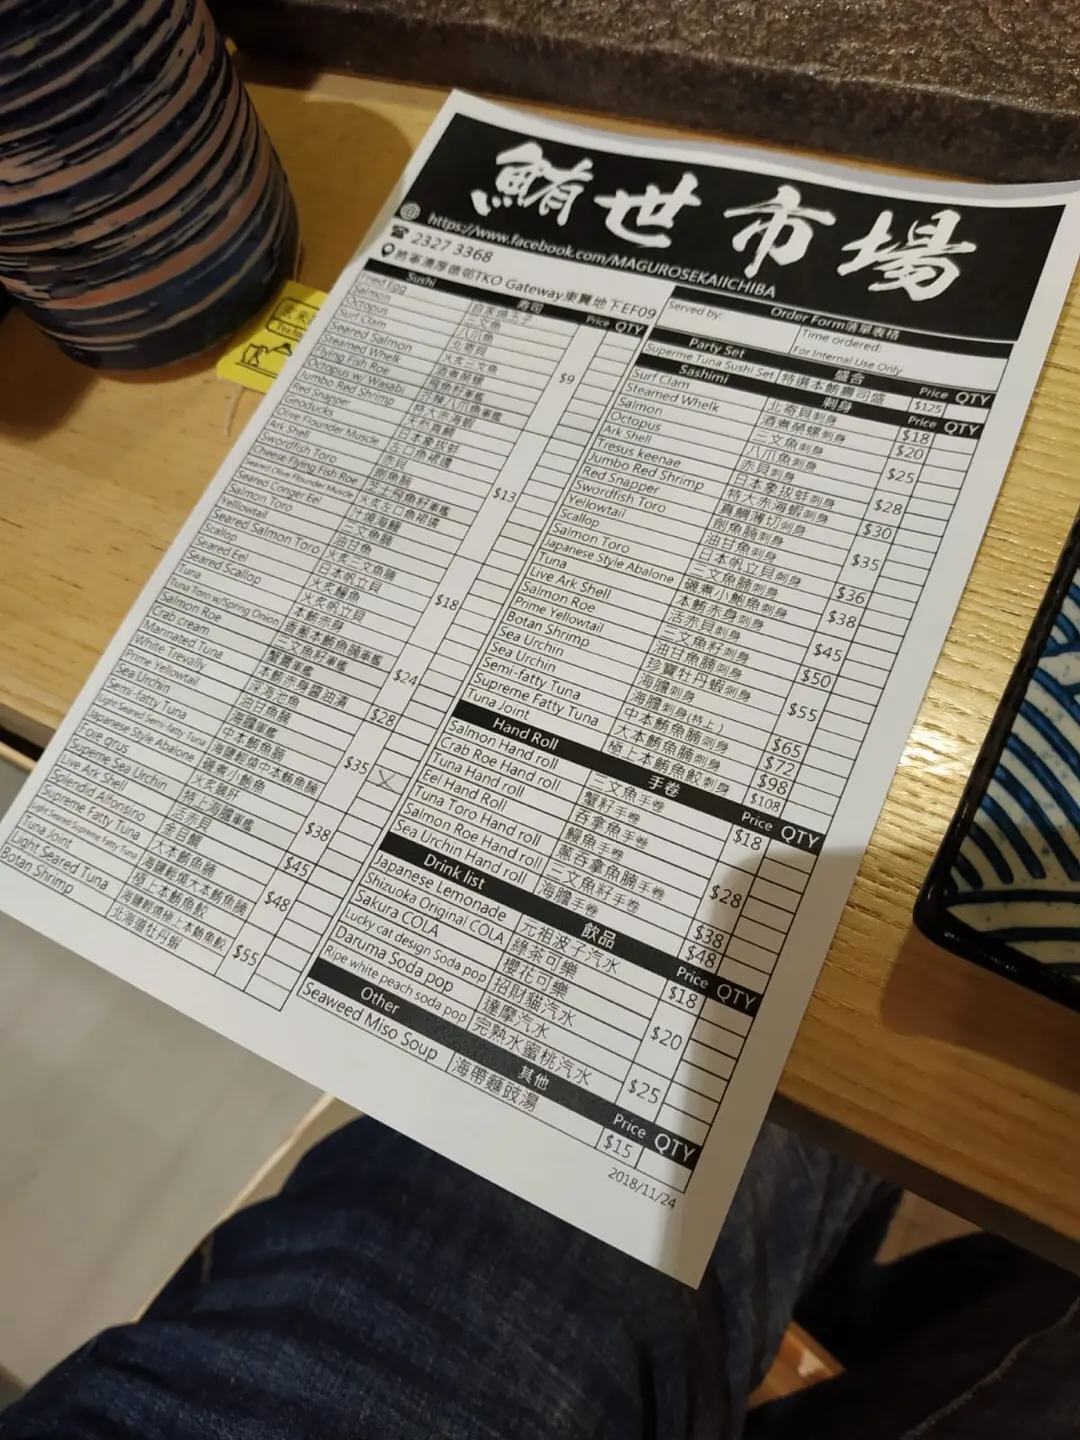 鮪世市場
https://www.facebook.com/MAGUROSEKAIICHIBA
2327 3368
將軍澳厚德邨TKO Gateway東翼地下EF09
Sushi 壽司 Price QTY
Fried Egg
Salmon 三文魚
Octopus 八爪魚
Surf Clam 北奇貝
Seared Salmon 火炙三文魚
Steamed Whelk 酒煮榮螺
Flying Fish Roe 飛魚籽軍艦
$9
Octopus w/ Wasabi
Jumbo Red Shrimp 特大赤海蝦
Red Snapper
Geoducks 日本象拔蚌
Olive Flounder Muscle 左口魚裙邊
Ark Shell 赤貝
Swordfish Toro 劍魚腩
$13
Cheese Flying Fish Roe 芝士飛魚籽軍艦
Seared Olive Flounder Muscle 火炙左口魚裙邊
Seared Conger Eel
Salmon Toro 三文魚腩
Yellowtail 油甘魚
Seared Salmon Toro 火炙三文魚腩
Scallop 日本帆立貝
Seared Eel 火炙鰻魚
Seared Scallop 火炙帆立貝
$18
Tuna 本鮪赤身
Tuna Toro w/Spring Onion 香蔥本鮪魚腩軍艦
Salmon Roe 三文魚籽軍艦
Crab cream 蟹膏軍艦
$24
Marinated Tuna 本鮪赤身醬油漬
White Trevally 深海池魚
$28
Prime Yellowtail 油甘魚腩
Sea Urchin 海膽軍艦
Semi-fatty Tuna 中本鮪魚腩
Light Seared Semi-fatty Tuna 海鹽輕燒中本鮪魚腩
$35
Japanese Style Abalone 磯煮小鮑魚
Foie grus 火炙鵝肝
Supreme Sea Urchin 特上海膽軍艦
$38
Live Ark Shell 活赤貝
Splendid Alfonsino 金目鯛
$45
Supreme Fatty Tuna 大本鮪魚腩
Light Seared Supreme Fatty Tuna 海鹽輕燒大本鮪魚腩
Tuna Joint 極上本鮪魚鮫
$48
Light Seared Tuna 海鹽輕燒極上本鮪魚鮫
Botan Shrimp 北海道牡丹蝦
$55
Order Form落單表格
Served by:
Time ordered:
For Internal Use Only
Party Set 盛合 Price QTY
Superme Tuna Sushi Set 特選本鮪壽司盛 $125
Sashimi 刺身 Price QTY
Surf Clam 北奇貝刺身 $18
Steamed Whelk 酒煮榮螺刺身 $20
Salmon 三文魚刺身
Octopus 八爪魚刺身
$25
Ark Shell 赤貝刺身
Tresus keenae 日本象拔蚌刺身
$28
Jumbo Red Shrimp 特大赤海蝦刺身
$30
Red Snapper 真鯛薄切刺身
Swordfish Toro 劍魚腩刺身
Yellowtail 油甘魚刺身
$35
Scallop 日本帆立貝刺身
Salmon Toro 三文魚腩刺身
$36
Japanese Style Abalone 磯煮小鮑魚刺身
$38
Tuna 本鮪赤身刺身
Live Ark Shell 活赤貝刺身
$45
Salmon Roe 三文魚籽刺身
Prime Yellowtail 油甘魚腩刺身
$50
Botan Shrimp 珍寶牡丹蝦刺身
Sea Urchin 海膽刺身
$55
Sea Urchin 海膽刺身(特上)
$65
Semi-fatty Tuna 中本鮪魚腩刺身 $72
Supreme Fatty Tuna 大本鮪魚腩刺身 $98
Tuna Joint 極上本鮪魚鮫刺身 $108
Hand Roll 手卷 Price QTY
Salmon Hand roll 三文魚手卷 $18
Crab Roe Hand roll 蟹籽手卷
Tuna Hand roll 吞拿魚手卷
Eel Hand Roll 鰻魚手卷
$28
Tuna Toro Hand roll 蔥吞拿魚腩手卷
Salmon Roe Hand roll 三文魚籽手卷 $38
Sea Urchin Hand roll 海膽手卷 $48
Drink list 飲品 Price QTY
Japanese Lemonade 元祖波子汽水 $18
Shizuoka Original COLA 綠茶可樂
Sakura COLA 櫻花可樂
$20
Lucky cat design Soda pop 招財貓汽水
Daruma Soda pop 達摩汽水
Ripe white peach soda pop 完熟水蜜桃汽水
$25
Other 其他 Price QTY
Seaweed Miso Soup 海帶麵豉湯 $15
2018/11/24